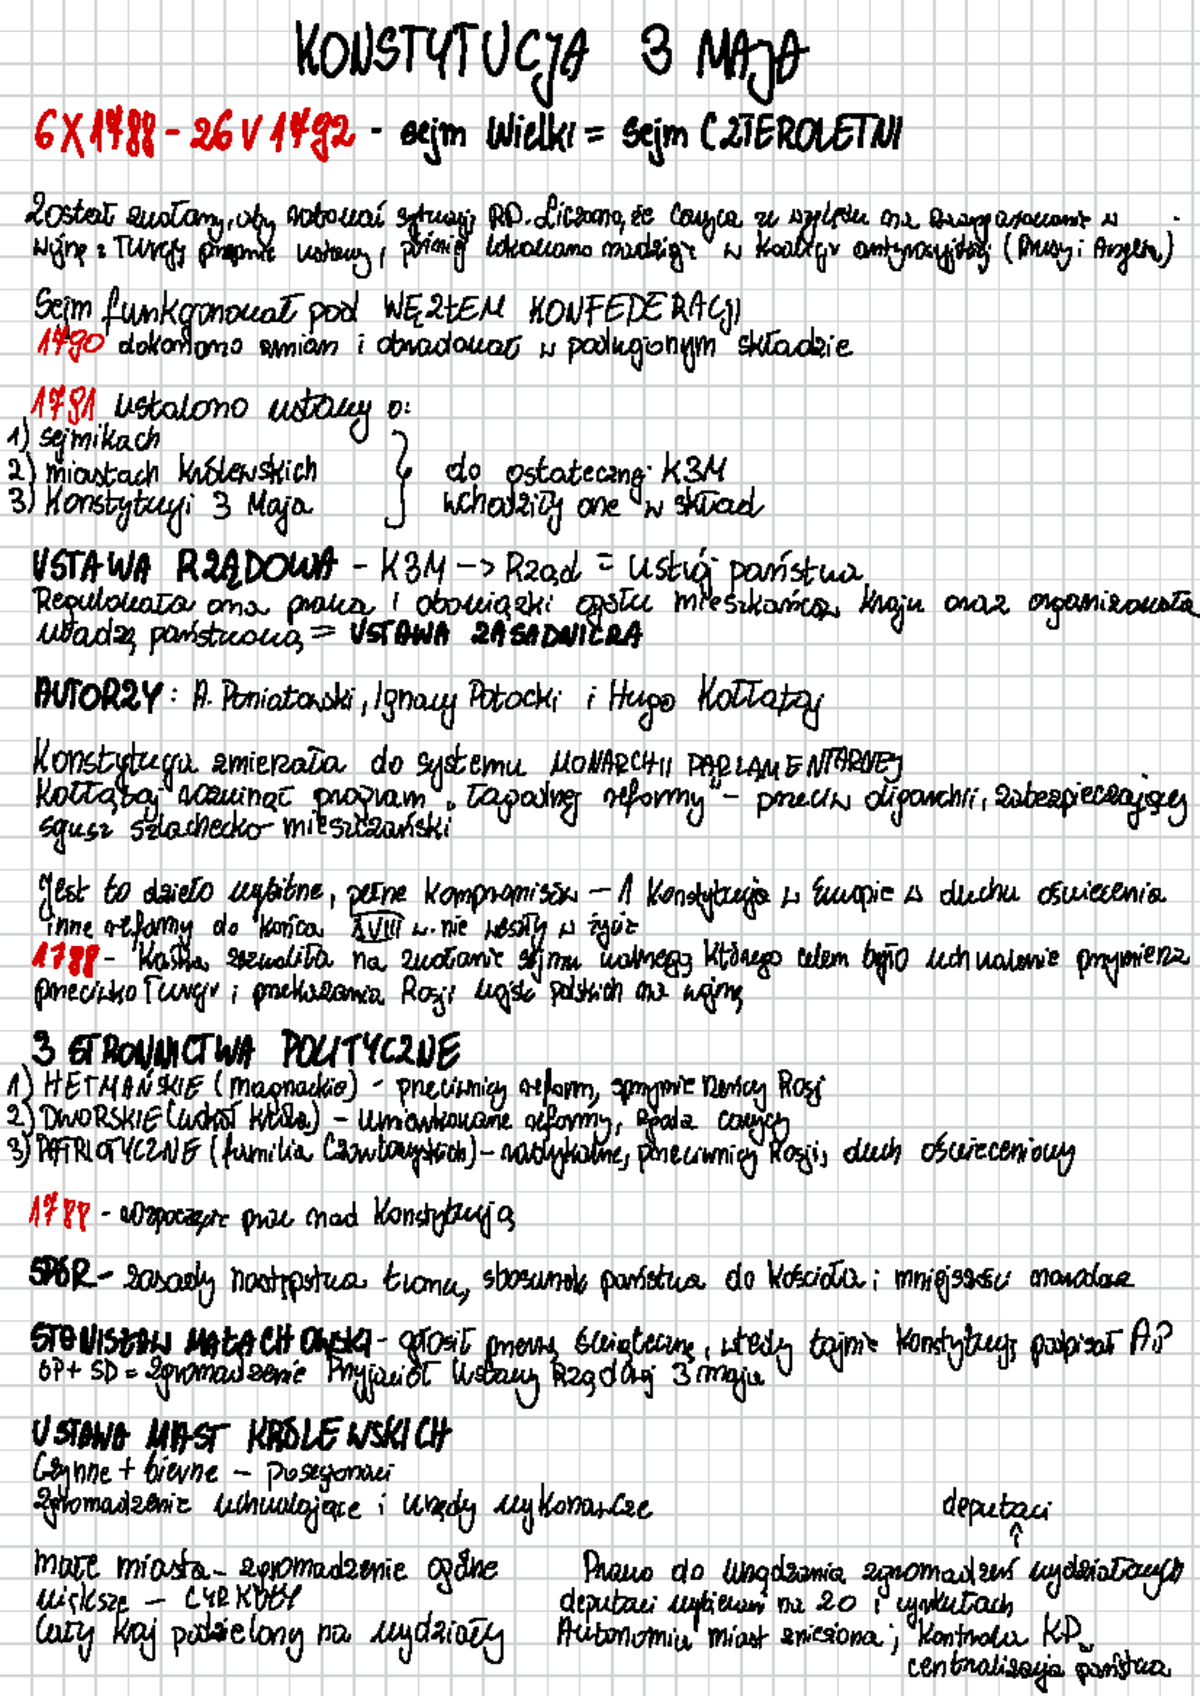 KONSTYTUCJA 3 MAJA
6 X 1788 - 26 V 1792 - sejm Wielki = sejm CZTEROLETNI
Został zwołany, aby ratować sytuację RP. Liczono, że caryca ze względu na zaangażowanie w
wojnę z Turcją poprze ustawy, później lokowano nadzieje w koalicji antyrosyjskiej (Prusy i Anglia)
Sejm funkcjonował pod WĘZŁEM KONFEDERACJI
1790 dokonano zmian i obradował w podwojonym składzie
1791 ustalono ustawy o:
1) sejmikach
2) miastach królewskich
3) Konstytucji 3 Maja
do ostatecznej K3M
wchodziły one w skład
USTAWA RZĄDOWA - K3M -> Rząd = ustrój państwa
Regulowała ona prawa i obowiązki ogółu mieszkańców kraju oraz organizowała
władzę państwową = USTAWA ZASADNICZA
AUTORZY: A. Poniatowski, Ignacy Potocki i Hugo Kołłątaj
Konstytucja zmierzała do systemu MONARCHII PARLAMENTARNEJ
Kołłątaj rozwinął program „łagodnej reformy" - przeciw oligarchii, zabezpieczającej
sojusz szlachecko-mieszczański
Jest to dzieło wybitne, pełne kompromisów - 1 Konstytucja w Europie w duchu oświecenia
inne reformy do końca XVIII w. nie weszły w życie
1788 - Kaśka zezwoliła na zwołanie sejmu walnego, którego celem było uchwalenie przymierza
przeciwko Turcji i przekazania Rosji wojsk polskich na wojnę
3 STRONNICTWA POLITYCZNE
1) HETMAŃSKIE (magnackie) - przeciwnicy reform, sprzymierzeńcy Rosji
2) DWORSKIE (wokół króla) - umiarkowane reformy, zgoda carycy
3) PATRIOTYCZNE (familia Czartoryskich) - radykalne, przeciwnicy Rosji, duch oświeceniowy
1788 - rozpoczęcie prac nad Konstytucją
SPÓR - zasady następstwa tronu, stosunek państwa do kościoła i mniejszości
STANISŁAW MAŁACHOWSKI - głosił przerwę świąteczną, wtedy tajnie Konstytucję podpisał AP
OP + SD = zgromadzenie Przyjaciół Ustawy Rządowej 3 maja
USTAWA MIAST KRÓLEWSKICH
Czynne + bierne - posesjonaci
zgromadzenie uchwalające i urzędy wykonawcze
deputaci
małe miasta - zgromadzenie ogólne
większe - CYRKUŁY
Cały kraj podzielony na wydziały
Prawo do urządzania zgromadzeń wydziałowych
deputaci wybierani na 20 i cyrkułach
Autonomia miast zniesiona; kontrola KP
centralizacja państwa